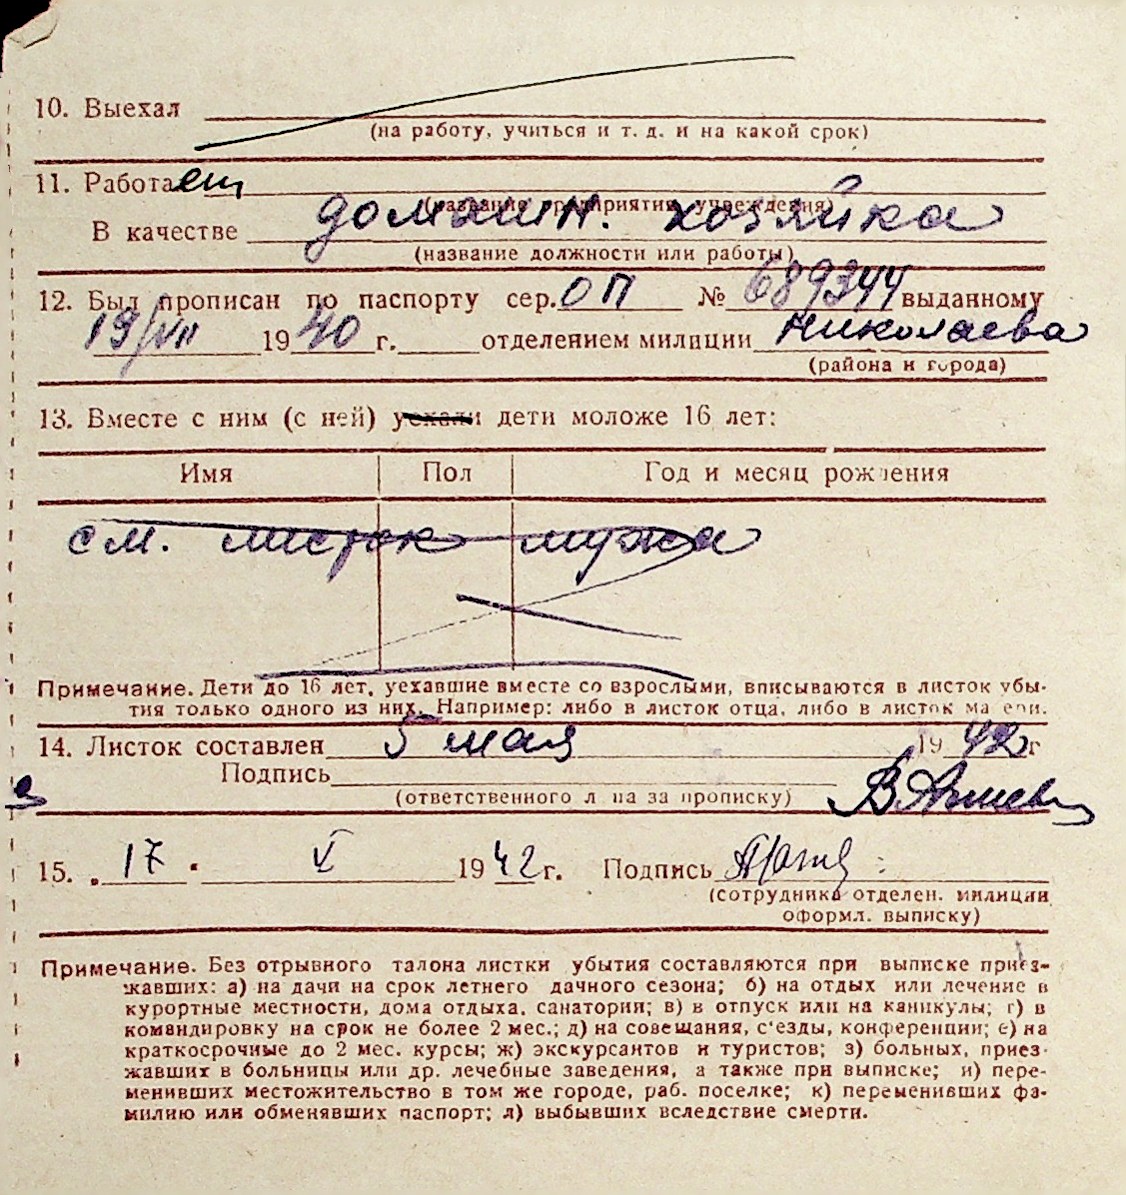 10. Выехал
(на работу, учиться и т. д. и на какой срок)
11. Работает
(название предприятия, учреждения)
В качестве домашн. хозяйка
(название должности или работы)
12. Был прописан по паспорту сер. ОП № 689344 выданному
19/VII 1940 г. отделением милиции Николаева
(района и города)
13. Вместе с ним (с ней) уехали дети моложе 16 лет:
Имя Пол Год и месяц рождения
см. листок мужа
Примечание. Дети до 16 лет, уехавшие вместе со взрослыми, вписываются в листок убы-
тия только одного из них. Например: либо в листок отца, либо в листок матери.
14. Листок составлен 5 мая 1942 г
Подпись
(ответственного лица за прописку)
15. 17 V 1942 г. Подпись
(сотрудника отделен. милиции
оформл. выписку)
Примечание. Без отрывного талона листки убытия составляются при выписке приез-
жавших: а) на дачи на срок летнего дачного сезона; б) на отдых или лечение в
курортные местности, дома отдыха, санатории; в) в отпуск или на каникулы; г) в
командировку на срок не более 2 мес.; д) на совещания, с'езды, конференции; е) на
краткосрочные до 2 мес. курсы; ж) экскурсантов и туристов; з) больных, приез-
жавших в больницы или др. лечебные заведения, а также при выписке; и) пере-
менивших местожительство в том же городе, раб. поселке; к) переменивших фа-
милию или обменявших паспорт; л) выбывших вследствие смерти.